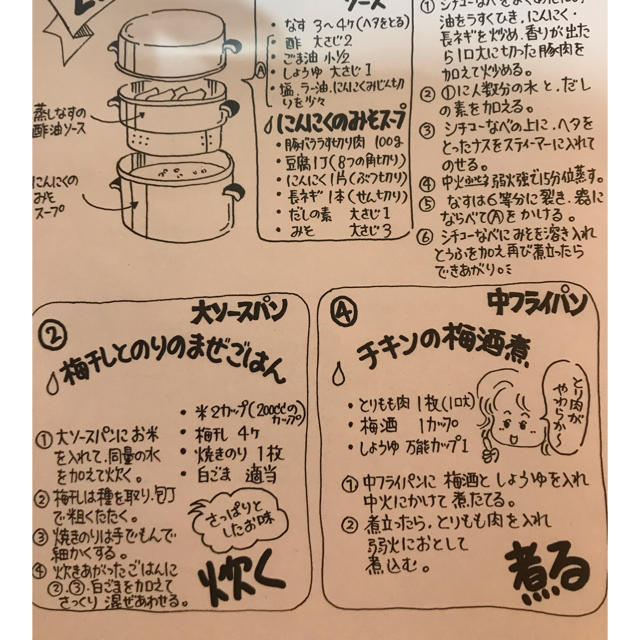 ソース
・なす 3〜4ヶ(ヘタをとる)
・酢 大さじ2
・ごま油 小1/2
・しょうゆ 大さじ1
・塩、ラー油、にんにくみじん切り を少々
Ⓐ
にんにくのみそスープ
・豚バラうす切り肉 100g
・豆腐1丁(8つの角切り)
・にんにく1片(ぶつ切り)
・長ネギ 1本(せん切り)
・だしの素 大さじ1
・みそ 大さじ3
蒸しなすの
酢油ソース
にんにくの
みそ
スープ
油をうすくひき、にんにく・
長ネギを炒め、香りが出た
ら1口大に切った豚肉を
加えて炒める。
② ①に人数分の水と、だし
の素を加える。
③ シチューなべの上に、ヘタを
とったナスをスティーマーに入れて
のせる。
④ 中火 弱火強で15分位蒸す。
⑤ なすは6等分に裂き、器に
ならべてⒶをかける。
⑥ シチューなべにみそを溶き入れ
とうふを加え再び煮立ったら
できあがり。
② 大ソースパン
梅干しとのりのまぜごはん
・米2カップ(200ccのカップ)
・梅干し 4ヶ
・焼きのり 1枚
・白ごま 適当
① 大ソースパンにお米
を入れて、同量の水
を加えて炊く。
② 梅干しは種を取り、包丁
で粗くたたく。
③ 焼きのりは手でもんで
細かくする。
④ 炊きあがったごはんに
②、③、白ごまを加えて
さっくり 混ぜあわせる。
さっぱりと
したお味
炊く
④ 中フライパン
チキンの梅酒煮
・とりもも肉 1枚(1口大)
・梅酒 1カップ
・しょうゆ 万能カップ1
とり肉が
やわらか〜
① 中フライパンに 梅酒としょうゆを入れ
中火にかけて 煮たてる。
② 煮立ったら、とりもも肉を入れ
弱火におとして
煮込む。
煮る